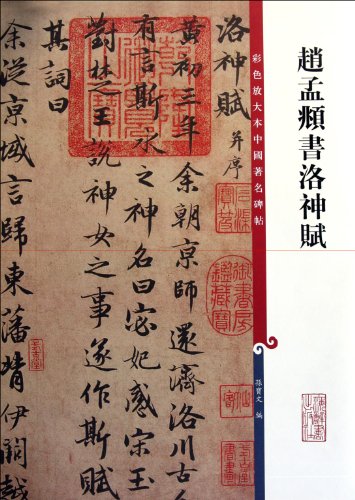 趙孟頫書洛神賦
彩色放大本中國著名碑帖
孫寶文 編
洛神賦 并序
黃初三年余朝京師還濟洛川古人
有言斯水之神名曰宓妃感宋玉
對楚王說神女之事遂作斯賦
其詞曰
余從京城言歸東藩背伊闕越
石渠寶笈
御書房鑑藏寶